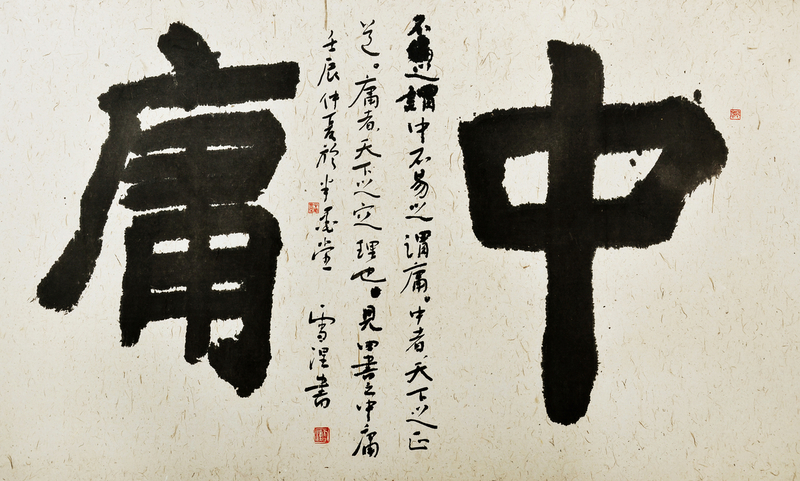 中
不偏之謂中不易之謂庸。中者天下之正
道。庸者天下之定理也。見四書之中庸
壬辰仲夏於半墨堂 雪涅書
庸